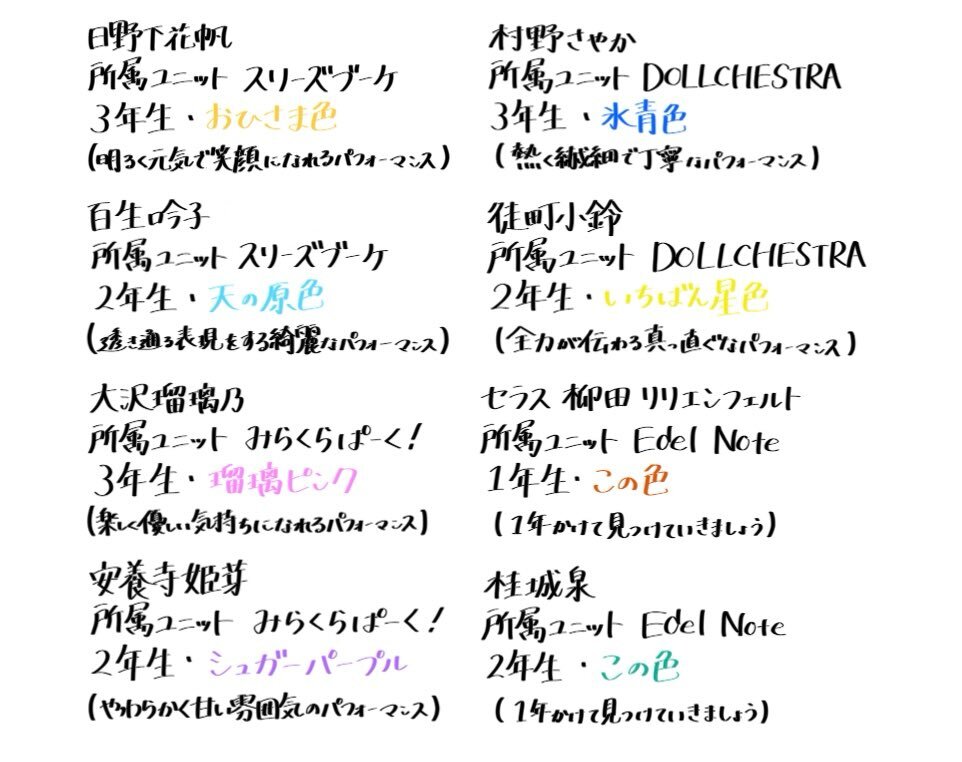 日野下花帆
所属ユニット スリーズブーケ
3年生・おひさま色
(明るく元気で笑顔になれるパフォーマンス)
百生吟子
所属ユニット スリーズブーケ
2年生・天の原色
(透き通る表現をする綺麗なパフォーマンス)
大沢瑠璃乃
所属ユニット みらくらぱーく!
3年生・瑠璃ピンク
(楽しく優しい気持ちになれるパフォーマンス)
安養寺姫芽
所属ユニット みらくらぱーく!
2年生・シュガーパープル
(やわらかく甘い雰囲気のパフォーマンス)
村野さやか
所属ユニット DOLLCHESTRA
3年生・氷青色
(熱く繊細で丁寧なパフォーマンス)
徒町小鈴
所属ユニット DOLLCHESTRA
2年生・いちばん星色
(全力が伝わる真っ直ぐなパフォーマンス)
セラス 柳田 リリエンフェルト
所属ユニット Edel Note
1年生・この色
(1年かけて見つけていきましょう)
桂城泉
所属ユニット Edel Note
2年生・この色
(1年かけて見つけていきましょう)